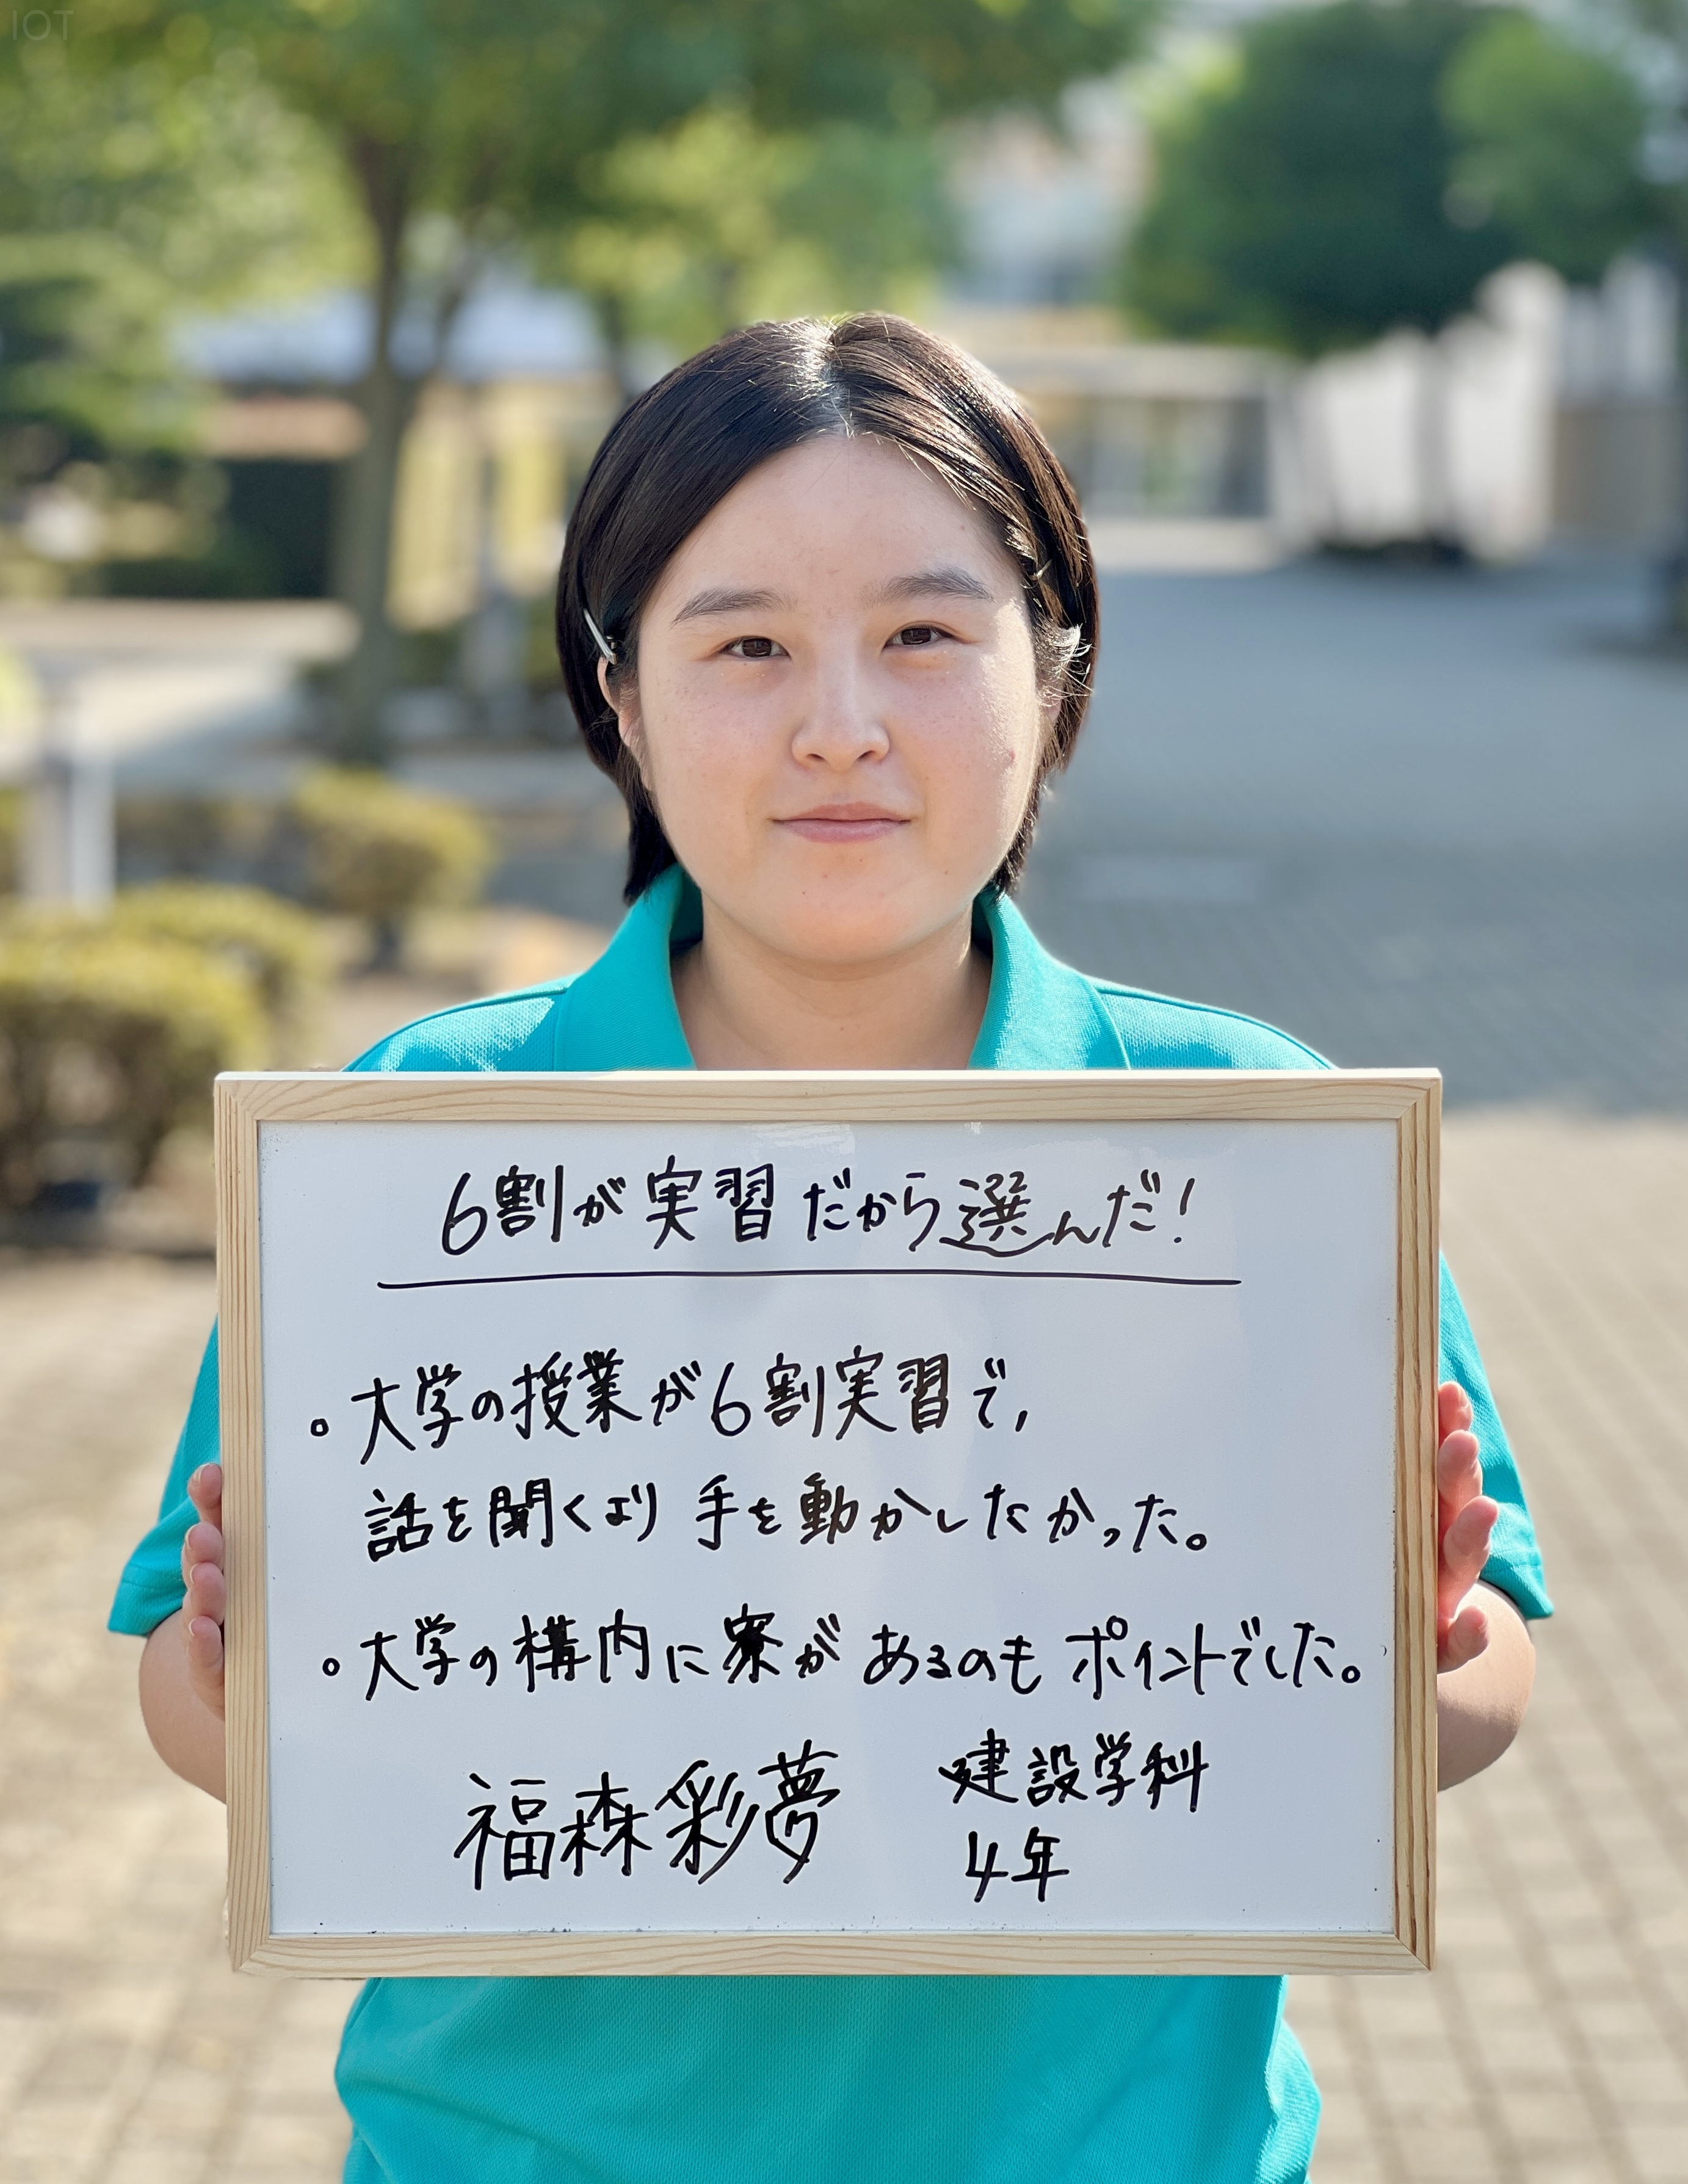 IOT
6割が実習だから選んだ!
。大学の授業が6割実習で,
話を聞くより手を動かしたかった。
。大学の構内に寮があるのもポイントでした。
福森彩夢
建設学科
4年